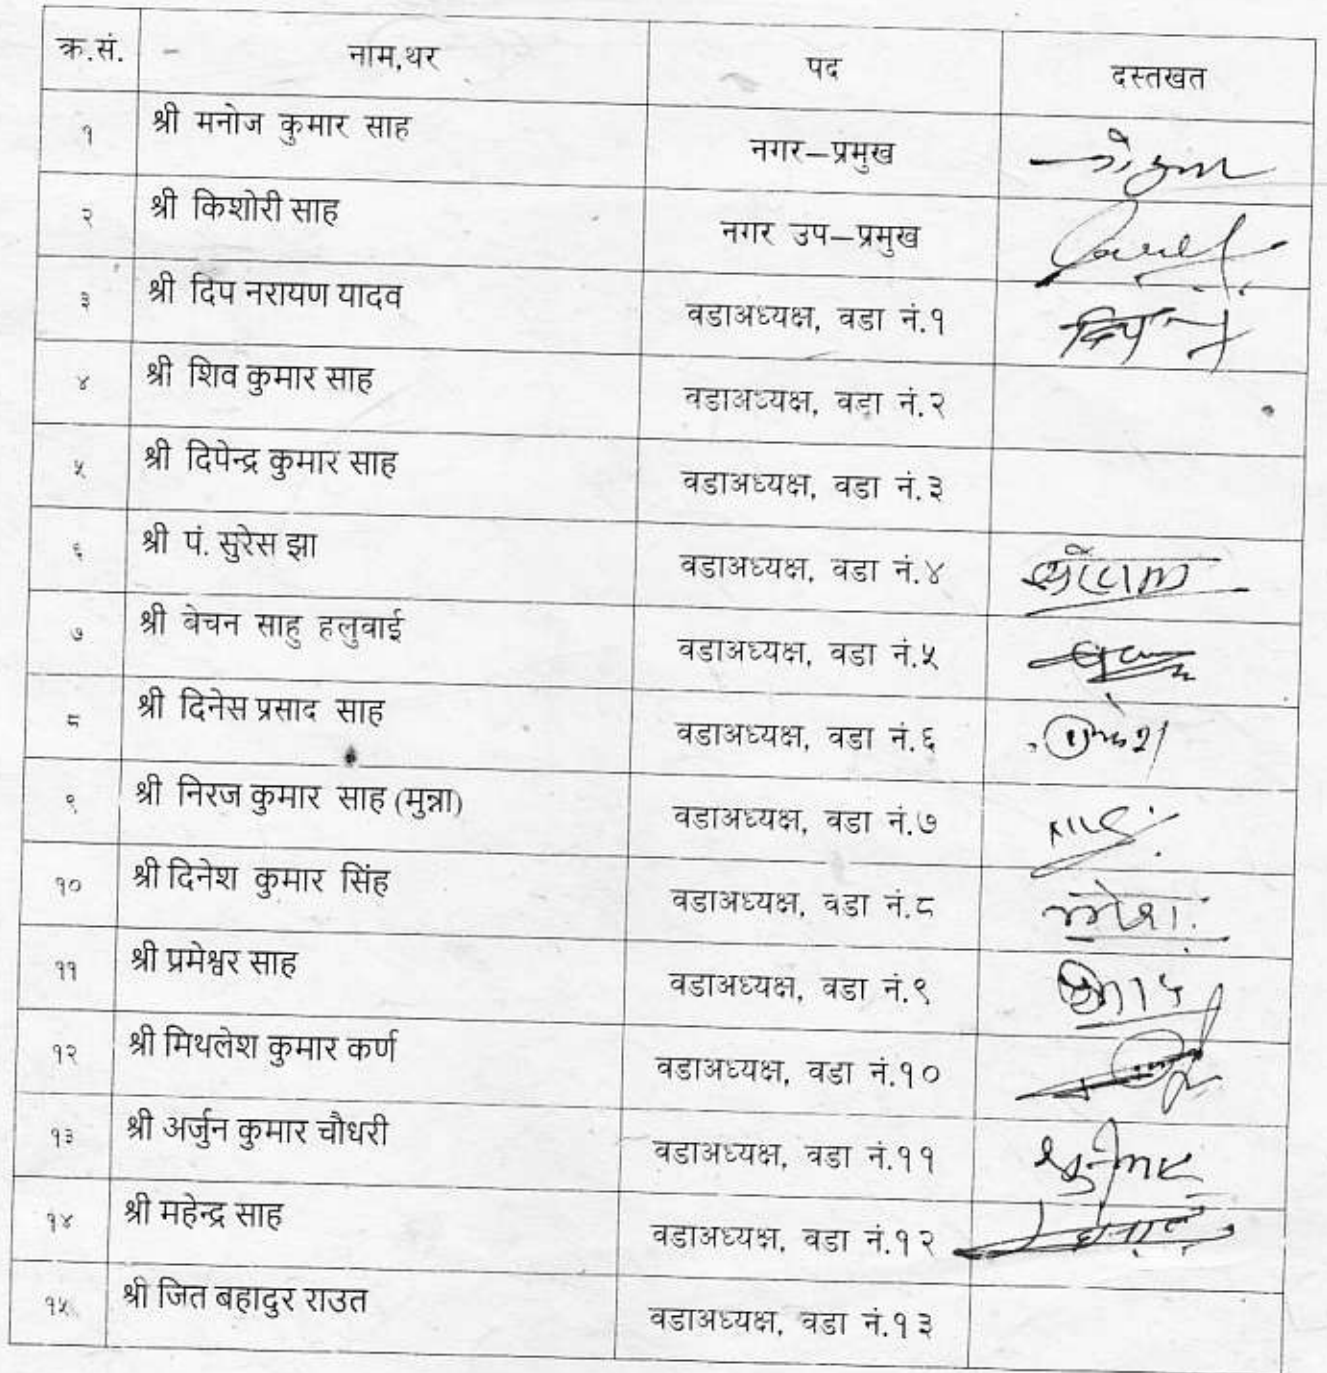 क्र.सं. नाम,थर पद दस्तखत
१ श्री मनोज कुमार साह नगर–प्रमुख
२ श्री किशोरी साह नगर उप–प्रमुख
३ श्री दिप नरायण यादव वडाअध्यक्ष, वडा नं.१
४ श्री शिव कुमार साह वडाअध्यक्ष, वडा नं.२
५ श्री दिपेन्द्र कुमार साह वडाअध्यक्ष, वडा नं.३
६ श्री पं. सुरेस झा वडाअध्यक्ष, वडा नं.४
७ श्री बेचन साहु हलुवाई वडाअध्यक्ष, वडा नं.५
८ श्री दिनेस प्रसाद साह वडाअध्यक्ष, वडा नं.६
९ श्री निरज कुमार साह (मुन्ना) वडाअध्यक्ष, वडा नं.७
१० श्री दिनेश कुमार सिंह वडाअध्यक्ष, वडा नं.८
११ श्री प्रमेश्वर साह वडाअध्यक्ष, वडा नं.९
१२ श्री मिथलेश कुमार कर्ण वडाअध्यक्ष, वडा नं.१०
१३ श्री अर्जुन कुमार चौधरी वडाअध्यक्ष, वडा नं.११
१४ श्री महेन्द्र साह वडाअध्यक्ष, वडा नं.१२
१५ श्री जित बहादुर राउत वडाअध्यक्ष, वडा नं.१३